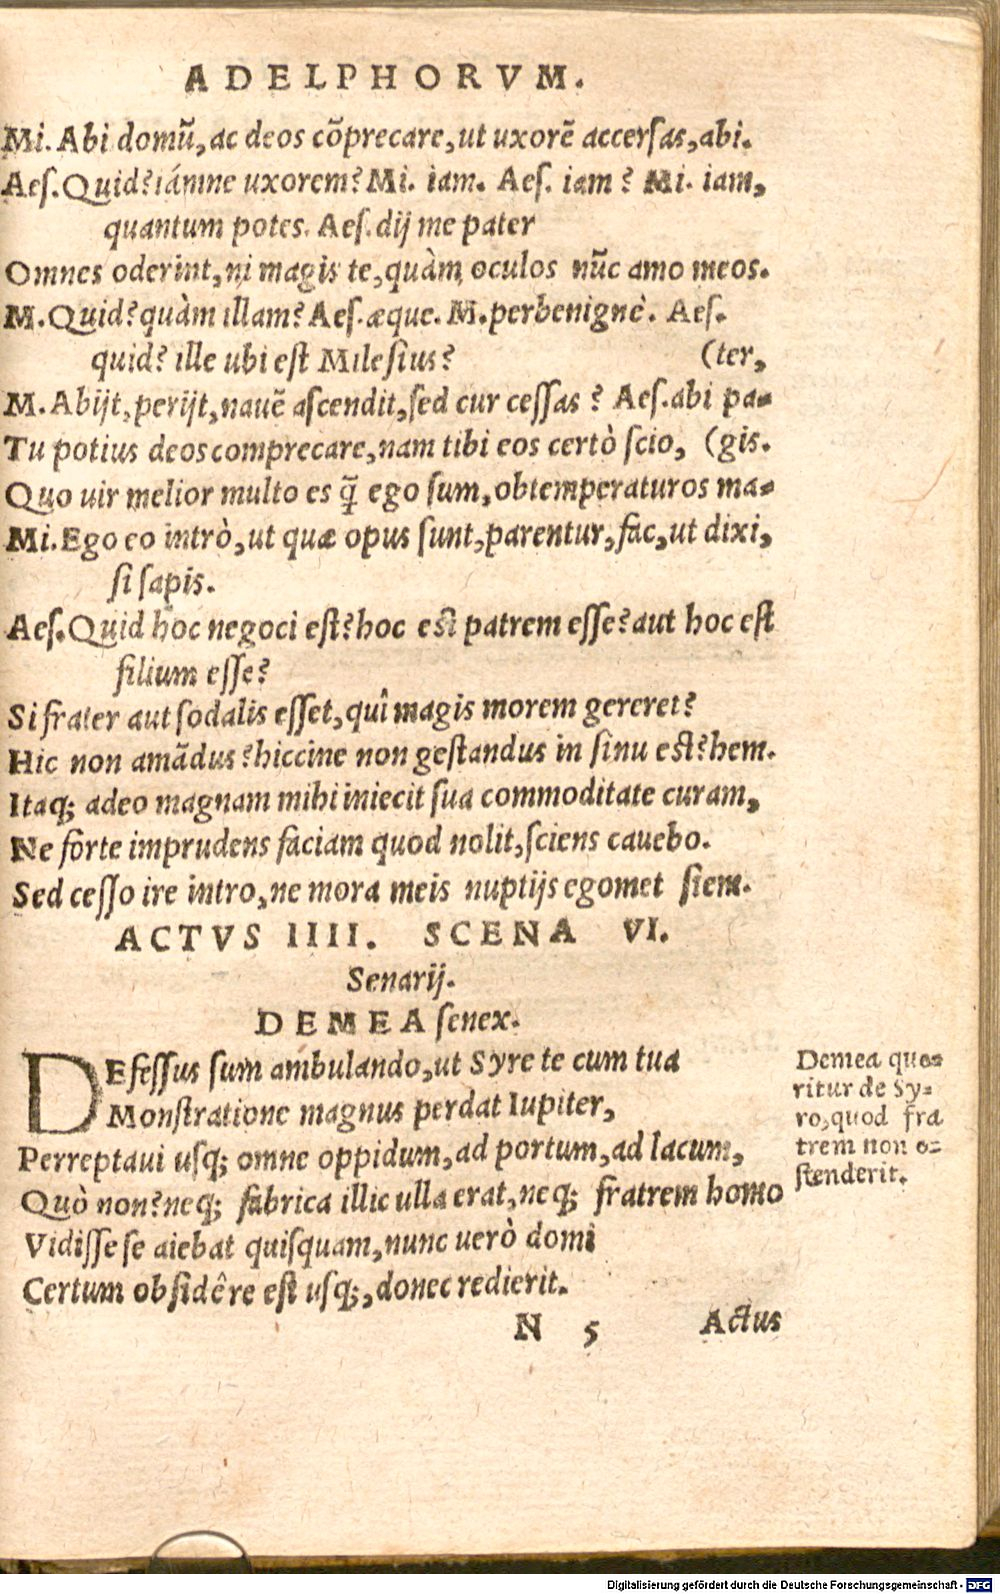 ADELPHORVM.
Mi. Abi domũ, ac deos cõprecare, ut uxorẽ accersas, abi.
Aes. Quid? iámne uxorem? Mi. iam. Aes. iam? Mi. iam,
quantum potes. Aes. dij me pater
Omnes oderint, ni magis te, quàm oculos nũc amo meos.
M. Quid? quàm illam? Aes. æque. M. perbenignè. Aes.
quid? ille ubi est Milesius? (ter,
M. Abijt, perijt, nauẽ ascendit, sed cur cessas? Aes. abi pa-
Tu potius deos comprecare, nam tibi eos certò scio, (gis.
Quo uir melior multo es q̃ ego sum, obtemperaturos ma-
Mi. Ego eo intrò, ut quæ opus sunt, parentur, fac, ut dixi,
si sapis.
Aes. Quid hoc negoci est? hoc est patrem esse? aut hoc est
filium esse?
Si frater aut sodalis esset, quî magis morem gereret?
Hic non amãdus? hiccine non gestandus in sinu est? hem.
Itaq; adeo magnam mihi iniecit sua commoditate curam,
Ne forte imprudens faciam quod nolit, sciens cauebo.
Sed cesso ire intro, ne mora meis nuptijs egomet siem.
ACTVS IIII. SCENA VI.
Senarij.
DEMEA senex.
DEfessus sum ambulando, ut Syre te cum tua
Monstratione magnus perdat Iupiter,
Perreptaui usq; omne oppidum, ad portum, ad lacum,
Quò non? neq; fabrica illic ulla erat, neq; fratrem homo
Vidisse se aiebat quisquam, nunc uerò domi
Certum obsidêre est usq;, donec redierit.
Demea quæ-
ritur de Sy-
ro, quod fra
trem non o-
stenderit.
N 5 Actus
Digitalisierung gefördert durch die Deutsche Forschungsgemeinschaft - DFG